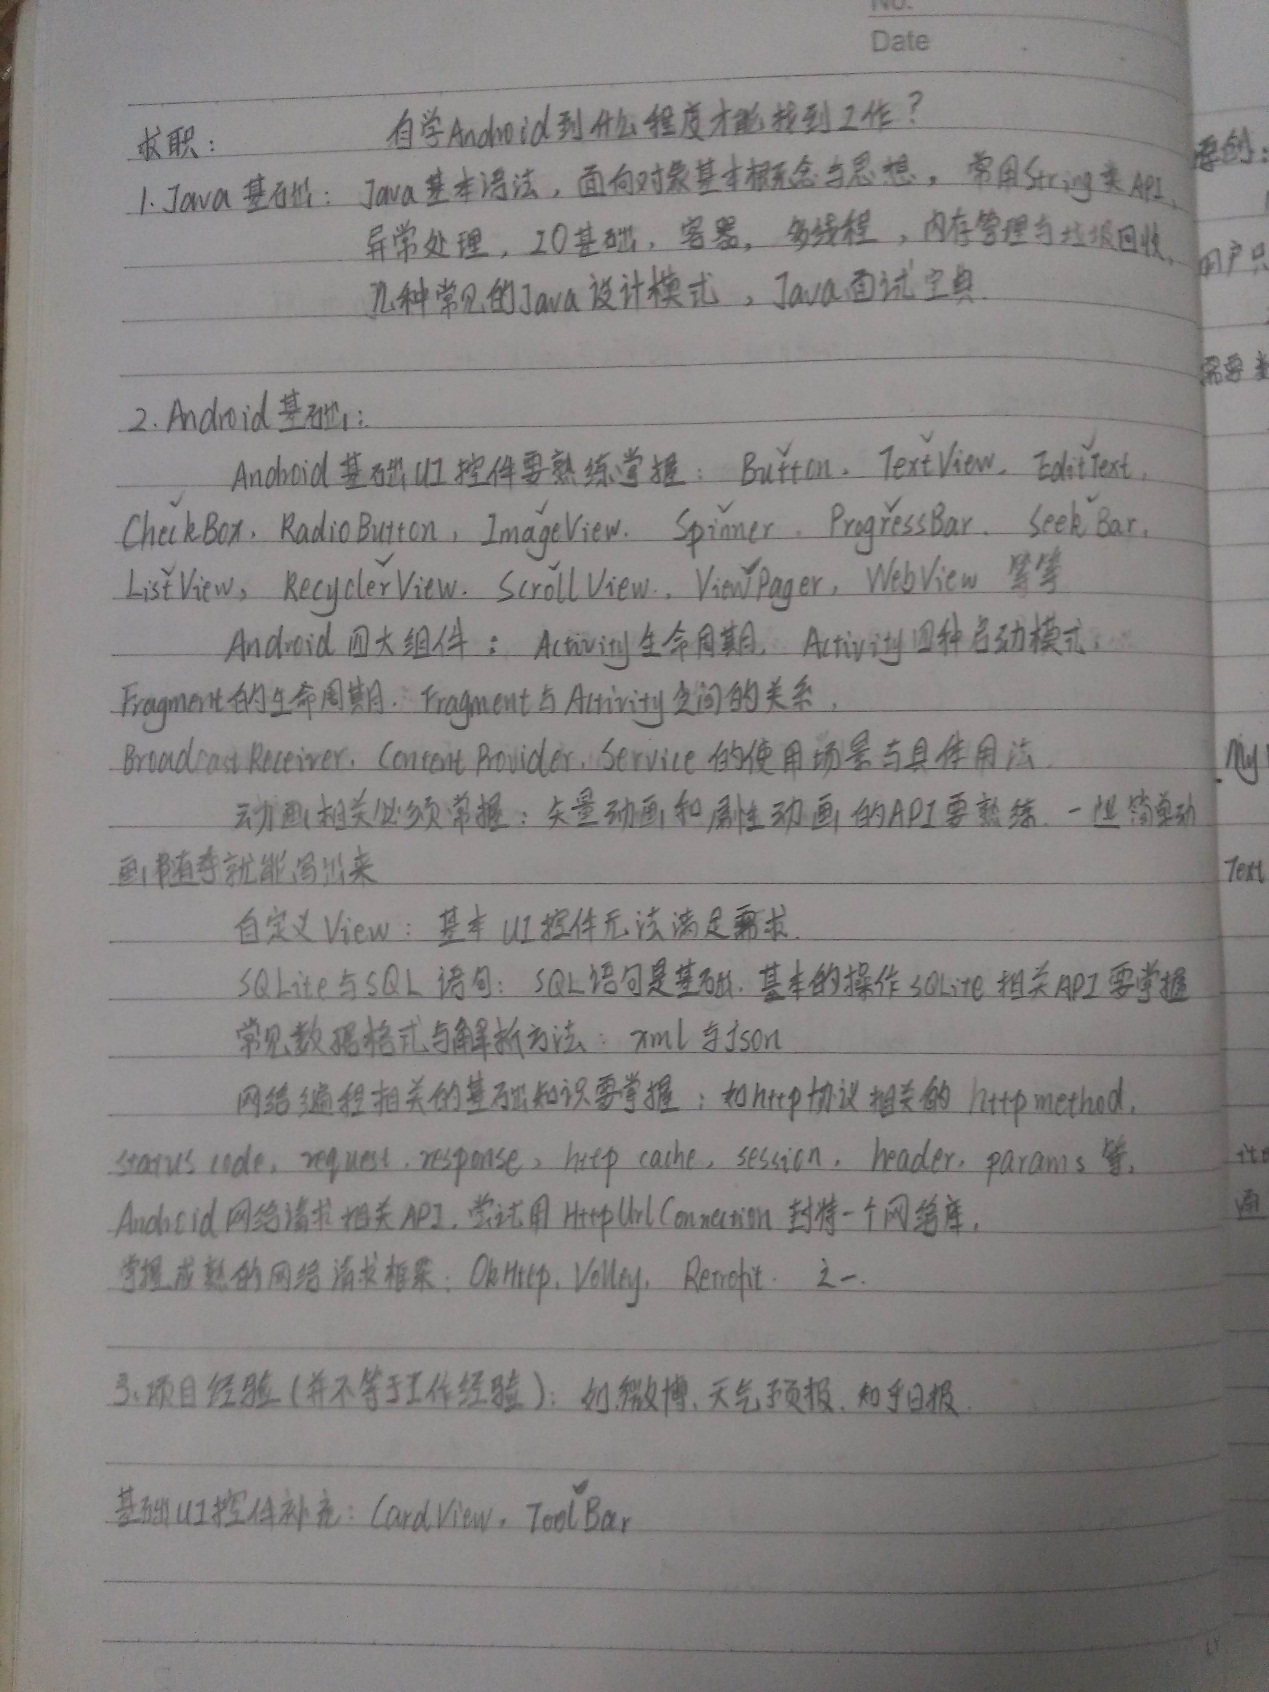 No.
Date
求职： 自学Android到什么程度才能找到工作？
1. Java基础：Java基本语法，面向对象基本概念与思想，常用String类API、
异常处理，IO基础，容器，多线程，内存管理与垃圾回收、
几种常见的Java设计模式，Java面试宝典.
2. Android基础：
Android基础UI控件要熟练掌握：Button、TextView、EditText、
CheckBox、RadioButton、ImageView、Spinner、ProgressBar、SeekBar、
ListView、RecyclerView、ScrollView、ViewPager、WebView 等等
Android四大组件：Activity生命周期、Activity四种启动模式、
Fragment的生命周期、Fragment与Activity之间的关系、
BroadcastReceiver、Content Provider、Service的使用场景与具体用法.
动画相关必须掌握：矢量动画和属性动画的API要熟练、一些简单动
画随手就能写出来
自定义View：基本UI控件无法满足需求.
SQLite与SQL语句：SQL语句是基础、基本的操作SQLite相关API要掌握
常见数据格式与解析方法：xml与json
网络编程相关的基础知识要掌握：如http协议相关的 http method、
status code、request、response、http cache、session、header、params 等、
Android网络请求相关API、尝试用HttpUrlConnection封装一个网络库、
掌握成熟的网络请求框架：OkHttp、Volley、Retrofit. 之一.
3、项目经验（并不等于工作经验）：如微博、天气预报、知乎日报.
基础UI控件补充：CardView、ToolBar
用户只
需要
My
Text